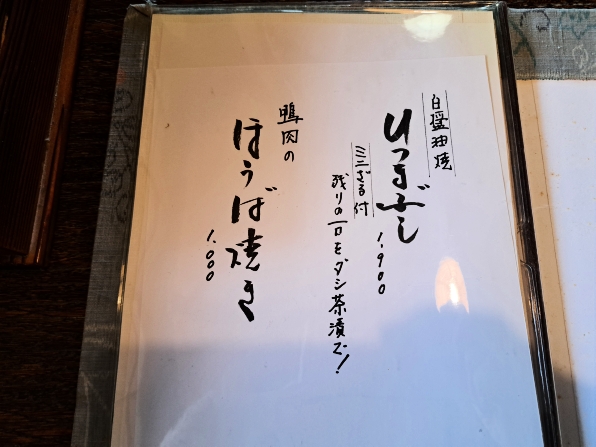 白醤油焼
ひつまぶし
1,900
ミニざる付
残りの一口もダシ茶漬で!
鴨肉の
ほうば焼き
1,000